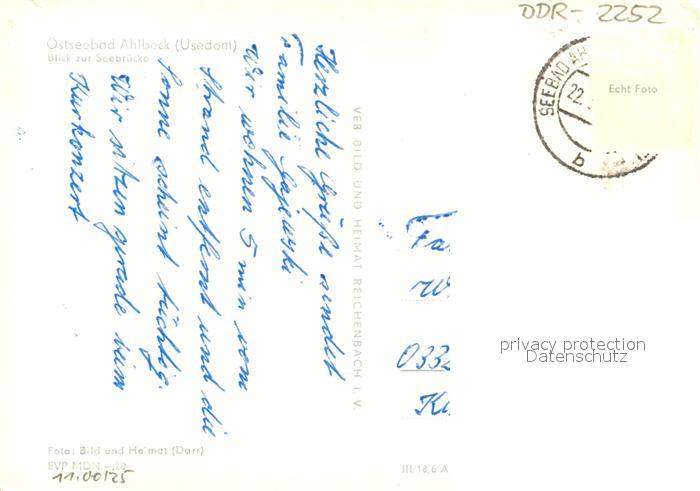 DDR- 2252
Ostseebad Ahlbeck (Usedom)
Blick zur Seebrücke
SEEBAD AH
22.
b
Echt Foto
Herzliche Grüße sendet
Familie Gajewski
Wir wohnen 5 min vom
Strand entfernt und die
Sonne scheint tüchtig.
Wir sitzen gerade beim
Kurkonzert
VEB BILD UND HEIMAT REICHENBACH i. V.
Fa
W
033
K
privacy protection
Datenschutz
Foto: Bild und Heimat (Darr)
EVP MDN -,20
III/18,6 A
11.00125